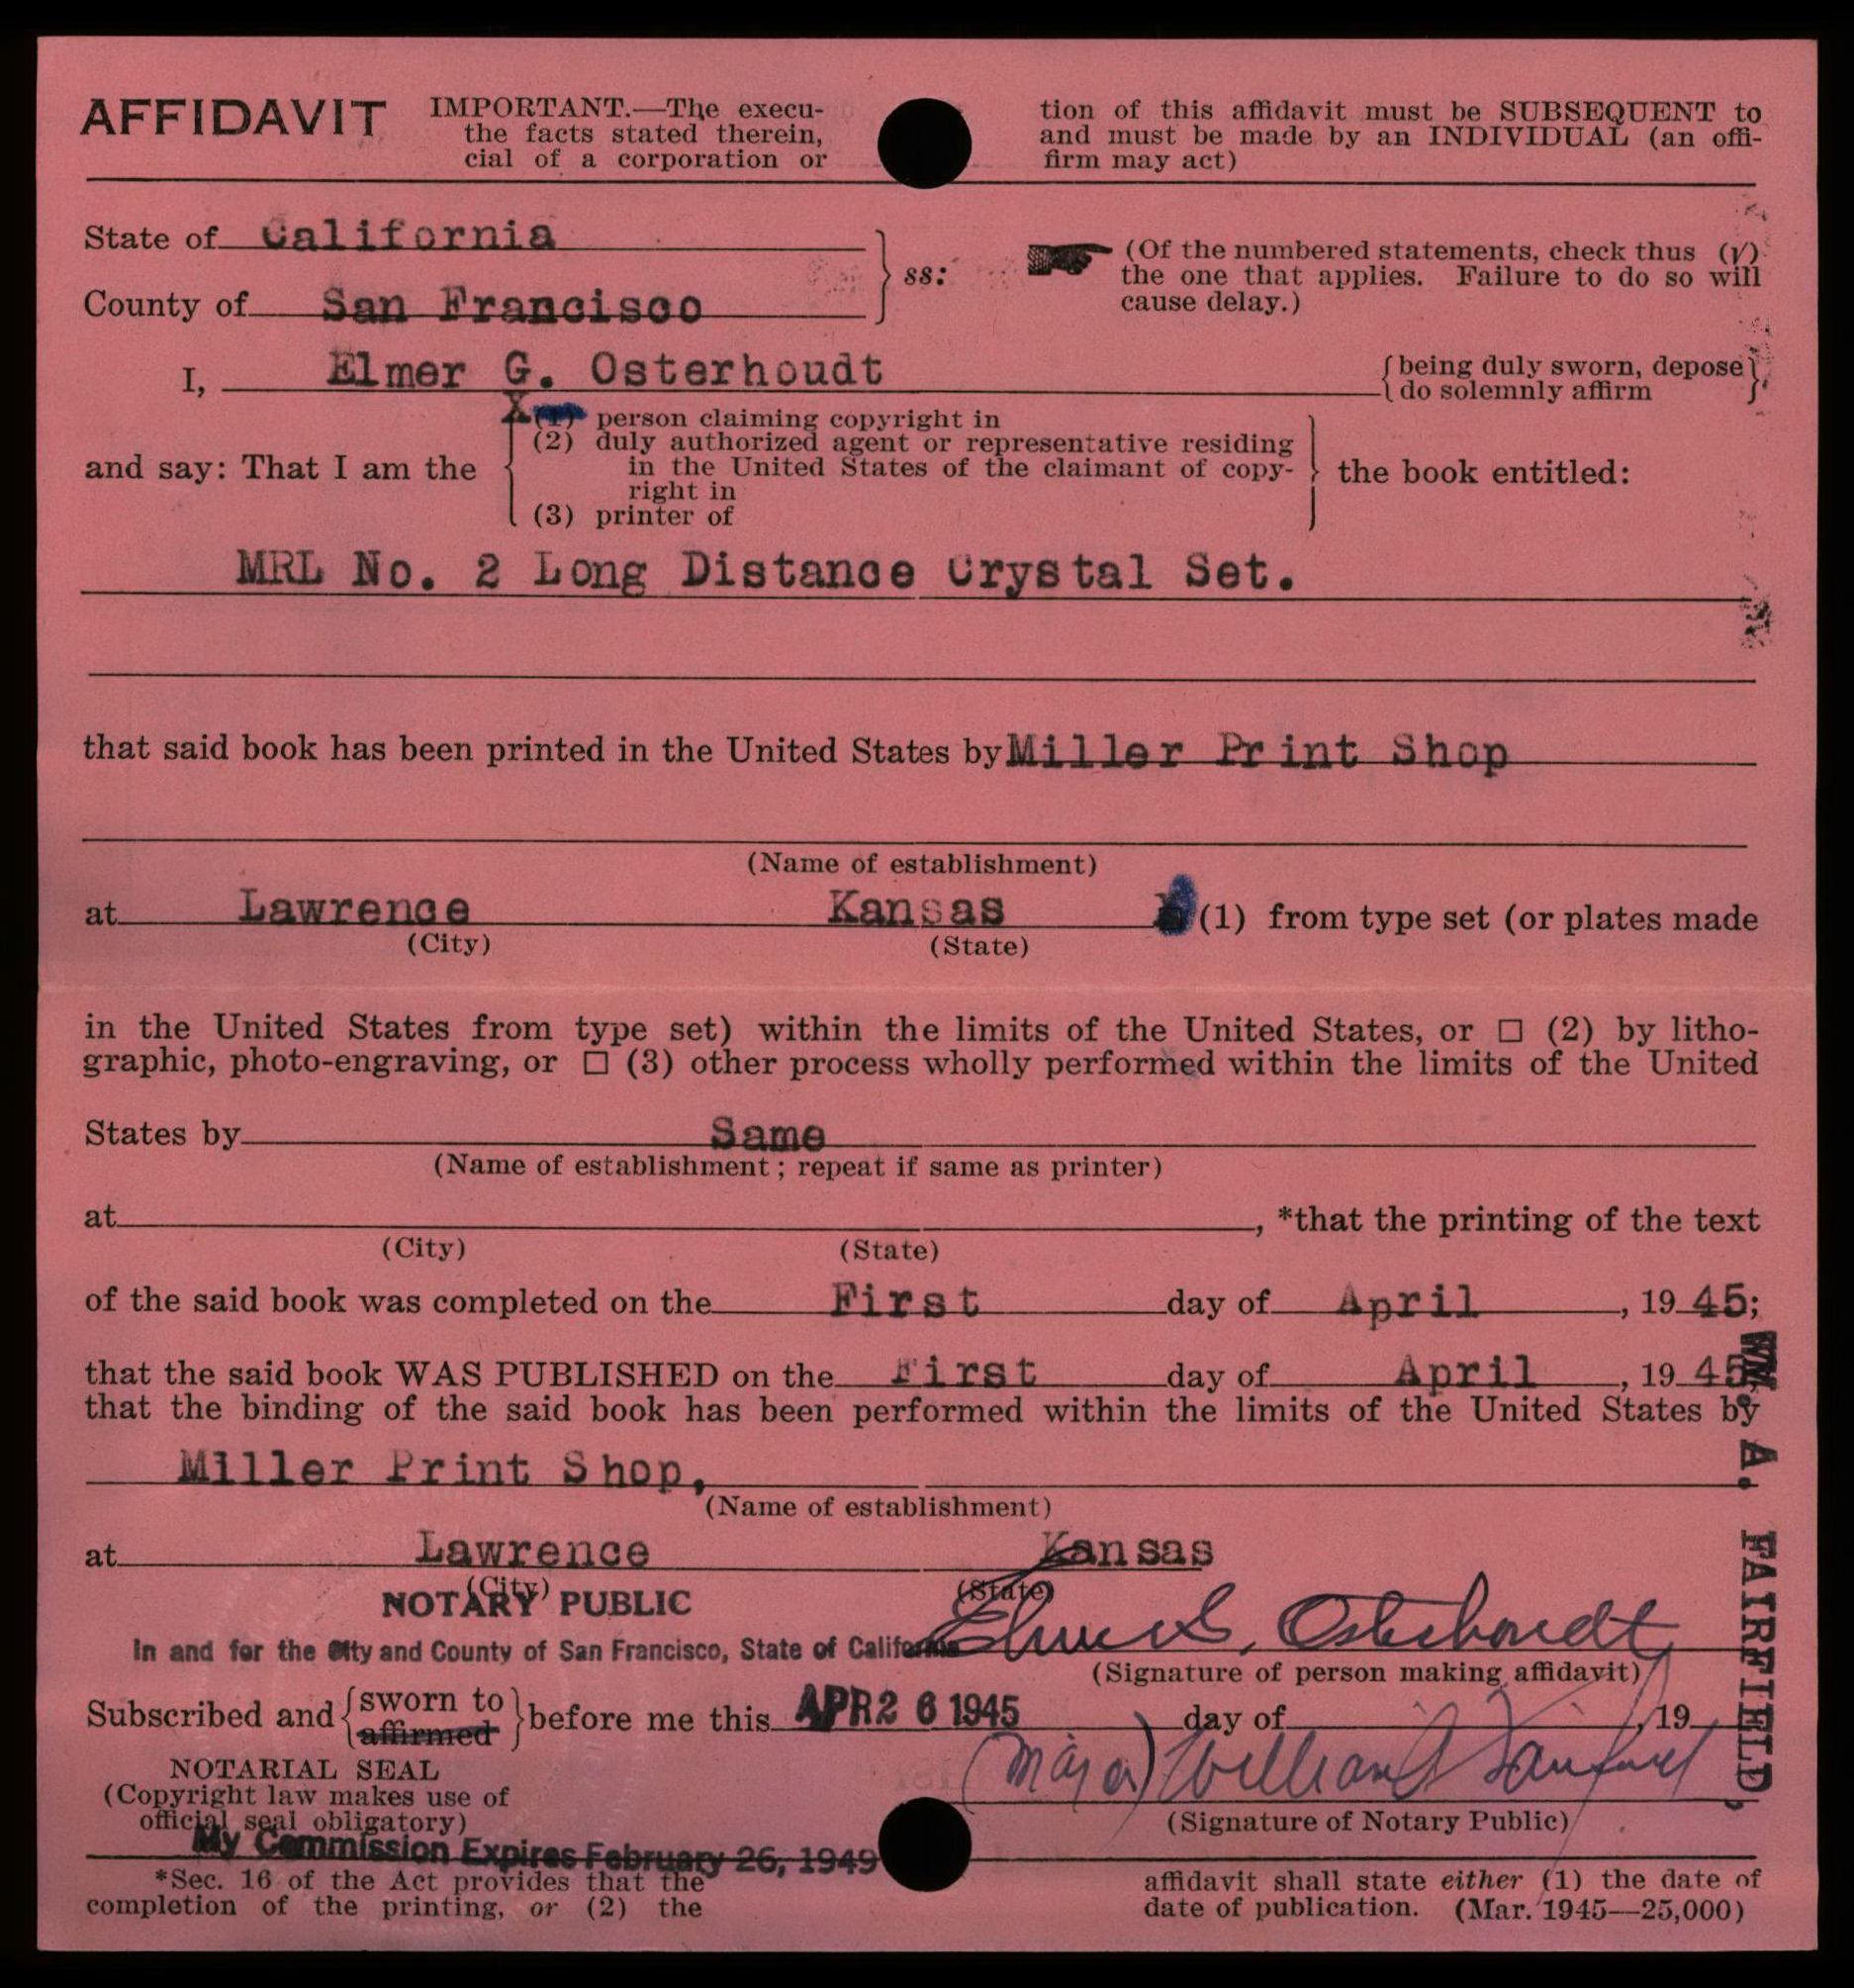 AFFIDAVIT IMPORTANT.—The execution of this affidavit must be SUBSEQUENT to
the facts stated therein, and must be made by an INDIVIDUAL (an offi-
cial of a corporation or firm may act)
State of California
ss:
(Of the numbered statements, check thus (√)
the one that applies. Failure to do so will
cause delay.)
County of San Francisco
I, Elmer G. Osterhoudt
being duly sworn, depose
do solemnly affirm
X (1) person claiming copyright in
(2) duly authorized agent or representative residing
and say: That I am the
in the United States of the claimant of copy-
right in
the book entitled:
(3) printer of
MRL No. 2 Long Distance Crystal Set.
that said book has been printed in the United States by Miller Print Shop
(Name of establishment)
at Lawrence Kansas (1) from type set (or plates made
(City) (State)
in the United States from type set) within the limits of the United States, or □ (2) by litho-
graphic, photo-engraving, or □ (3) other process wholly performed within the limits of the United
States by Same
(Name of establishment; repeat if same as printer)
at , *that the printing of the text
(City) (State)
of the said book was completed on the First day of April , 19 45;
that the said book WAS PUBLISHED on the First day of April , 19 45
that the binding of the said book has been performed within the limits of the United States by
Miller Print Shop,
(Name of establishment)
at Lawrence Kansas
(City) (State)
NOTARY PUBLIC
In and for the City and County of San Francisco, State of California
Elmer G. Osterhoudt
(Signature of person making affidavit)
Subscribed and sworn to affirmed before me this APR 26 1945 day of , 19
NOTARIAL SEAL
(Copyright law makes use of
official seal obligatory)
(Signature of Notary Public)
My Commission Expires February 26, 1949
*Sec. 16 of the Act provides that the affidavit shall state either (1) the date of
completion of the printing, or (2) the date of publication. (Mar. 1945—25,000)
WM. A. FAIRFIELD,